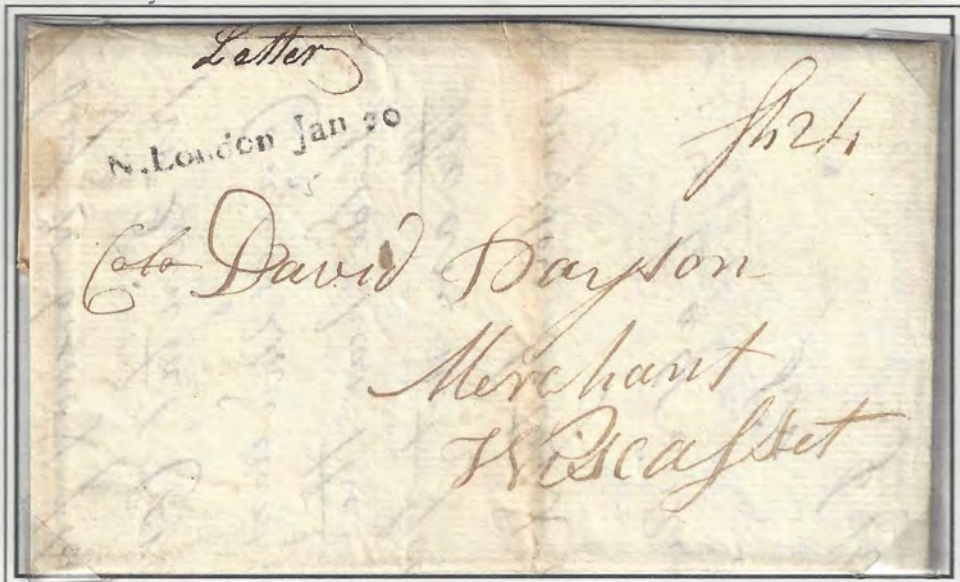 Letter
Sh24
N.London Jan 20
Colo David Payson
Merchant
Wiscaſset